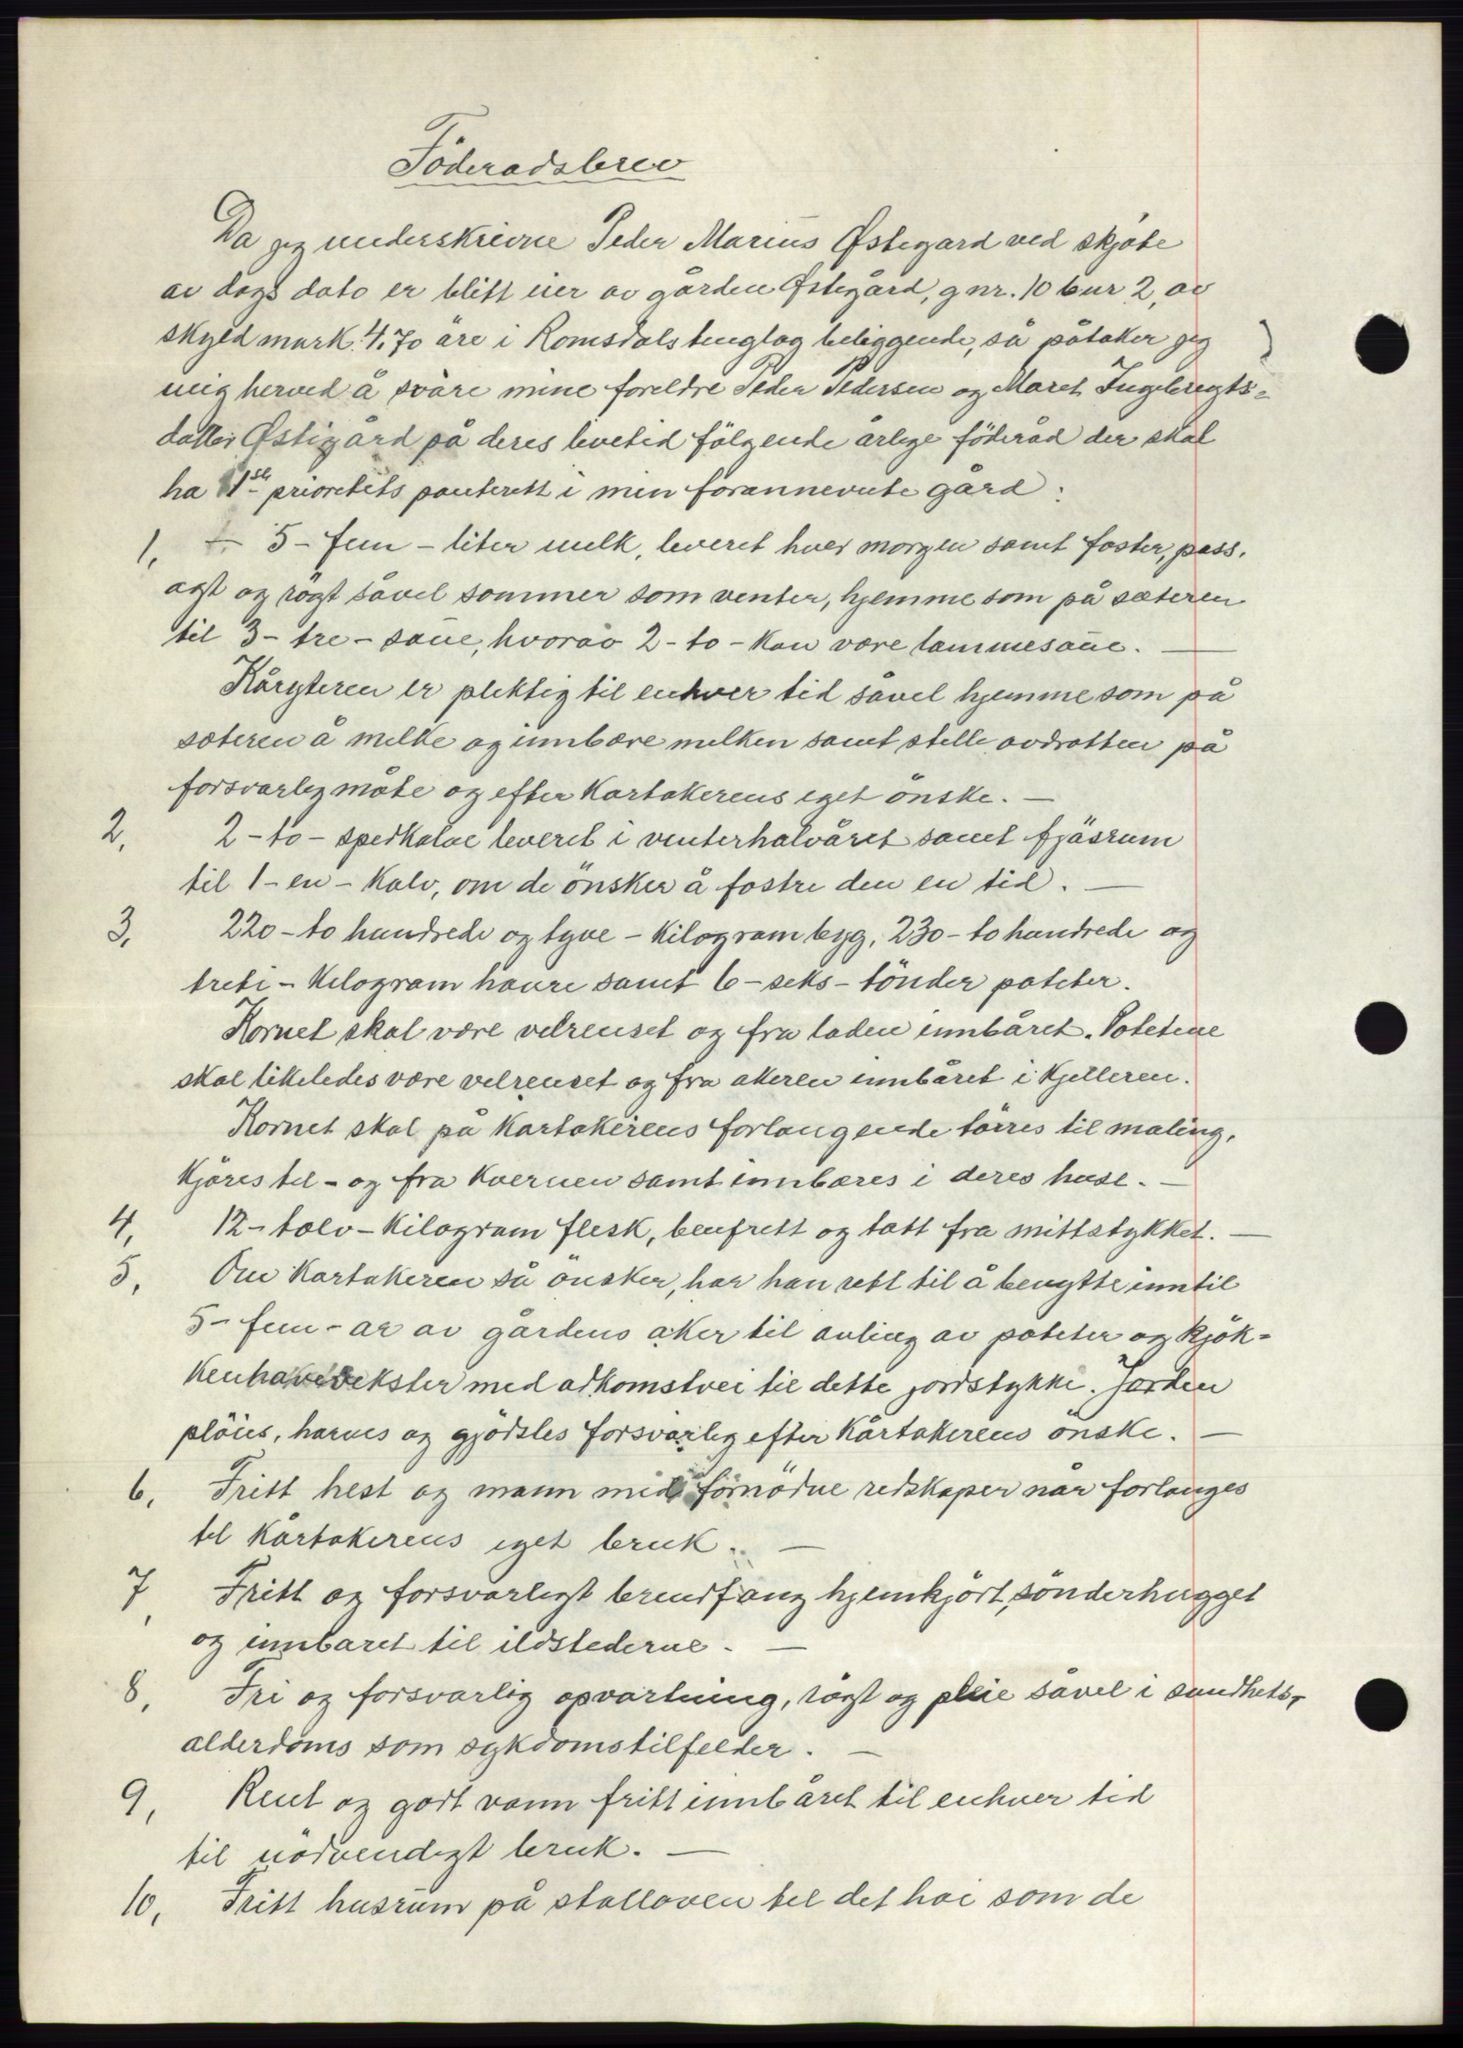 Föderadsbrev
Da jeg underskrivne Peder Marius Østegard ved skjøte
av dags dato er blitt eier av gården Østegård, gnr. 10 bnr 2, av
skyld mark 4,70 øre i Romsdals tinglag beliggende, så påtaker jeg
mig herved å svare mine foreldre Peder Pedersen og Maret Ingebregts-
datter Østigård på deres levetid fölgende årlige föderåd der skal
ha 1ste prioritets panterett i min forannevnte gård:
1, – 5 – fem – liter melk, leveret hver morgen samt foster, pass,
agt og rögt såvel sommer som venter, hjemme som på sæteren
til 3 – tre – saue, hvorav 2 – to – kan være lammesaue. –
Kårgteren er pliktig til enhver tid såvel hjemme som på
sæteren å melke og innbære melken samt stelle avdrotten på
forsvarlig måte og efter Kartakerens eget önske. –
2, 2 – to – spedkalve leveret i venterhalvåret samt fjäsrum
til 1 – en – Kalv, om de önsker å fostre den en tid. –
3, 220 – to hundrede og tyve – Kilogram byg, 230 – to hundrede og
treti – Kilogram havre samt 6 – seks – tönder poteter.
Kornet skal være velrenset og fra laden innbåret. Potetene
skal likeledes være velrenset og fra akeren innbåret i Kjelleren.
Kornet skal på Kartakerens forlangende törres til maling,
Kjöres til – og fra Kvernen samt innbæres i deres huse. –
4, 12 – tolv – Kilogram flesk, benfritt og tatt fra mittstykket. –
5, Om Kartakeren så önsker, har han rett til å benytte inntil
5 – fem – ar av gårdens aker til avling av poteter og kjök-
kenhavevekster med adkomstvei til dette jordstykke. Jorden
plöies, harves og gjödsles forsvarlig efter Kårtakerens önske. –
6, Fritt hest og mann med fornödne redskaper når forlanges
til Kårtakerens eget bruk. –
7, Fritt og forsvarligt brendfang hjemkjört, sönderhugget
og innbaret til ildstederne. –
8, Fri og forsvarlig opvartning, rögt og pleie såvel i sundhets-,
alderdoms som sykdomstilfelder. –
9, Rent og godt vann fritt innbåret til enhver tid
til nödvendigt bruk. –
10, Fritt husrum på stalloven til det höi som de